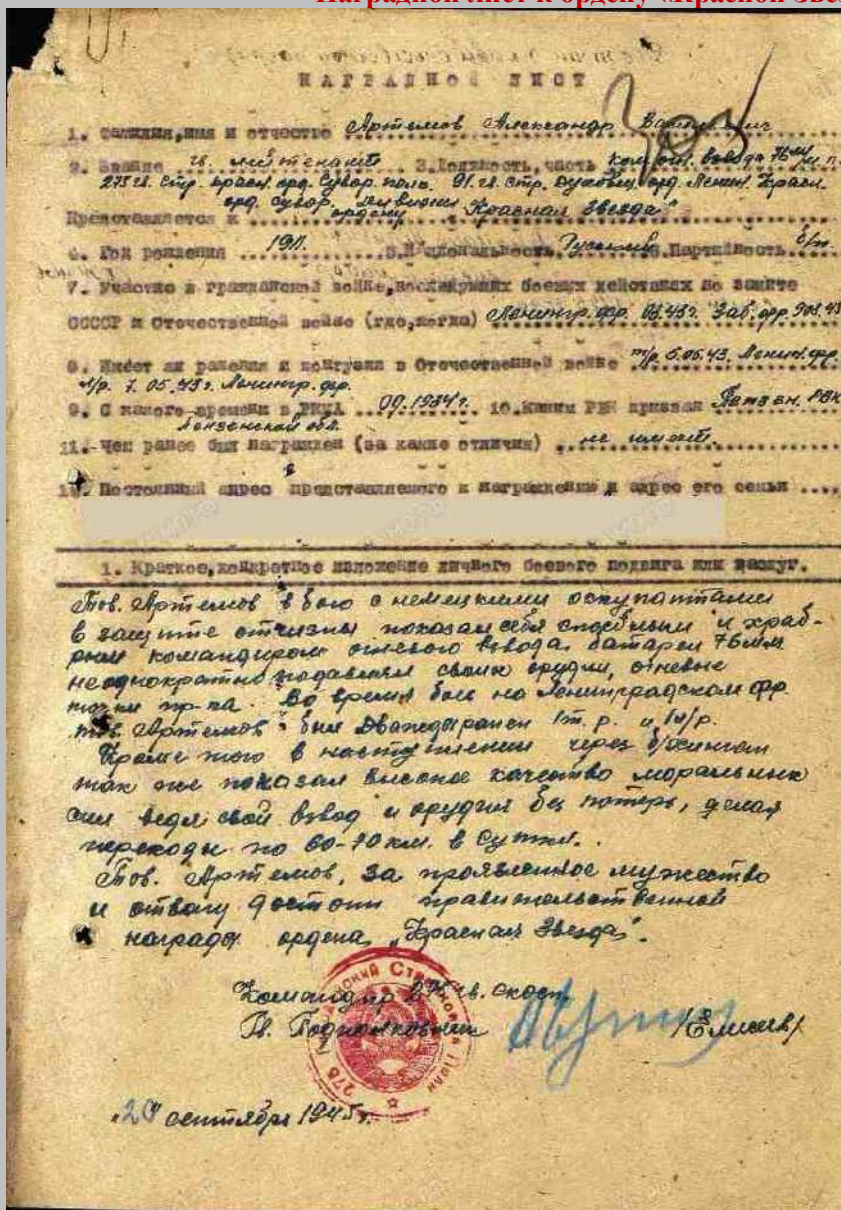 Наградной лист к ордену «Красной Звез
НАГРАДНОЙ ЛИСТ
1. Фамилия, имя и отчество Артемов Александр
2. Звание гв. лейтенант 3. Должность, часть ком. огн. взвода 76мм
275 гв. стр. красн. орд. Сувор. полк. 91 гв. стр. Духовщ. орд. Ленин. Красн.
орд. Сувор. дивизии
Представляется к ордену "Красная Звезда"
4. Год рождения 1911. 5. Национальность Русский 6. Партийность б/п
7. Участие в гражданской войне, последующих боевых действиях по защите
СССР и Отечественной войне (где, когда) Ленингр. фр. Заб. фр.
8. Имеет ли ранения и контузии в Отечественной войне т/р 5.05.43. Ленин. фр.
л/р. 7.05.43 г. Ленингр. фр.
9. С какого времени в РККА 09.1934 г. 10. Каким РВК призван РВК
Пензенской обл.
11. Чем ранее был награжден (за какие отличия) не имеет.
12. Постоянный адрес представляемого к награждению и адрес его семьи
1. Краткое, конкретное изложение личного боевого подвига или заслуг.
Тов. Артемов в бою с немецкими оккупантами
в защите отчизны показал себя способным и храб-
рым командиром огневого взвода батареи 76мм
неоднократно подавлял своих орудий, огневые
точки пр-ка. Во время боев на Ленинградском фр.
тов. Артемов был дважды ранен 1т.р. и 1л/р.
Кроме того в наступлении через б/хинган
так же показал высокое качество моральных
сил ведя свой взвод и орудия без потерь, делая
переходы по 60-70 км. в сутки.
Тов. Артемов, за проявленное мужество
и отвагу достоин правительственной
награды ордена "Красная Звезда".
Командир 275 гв.
Гв. Подполковник /Елисеев/
"20" сентября 1945 г.